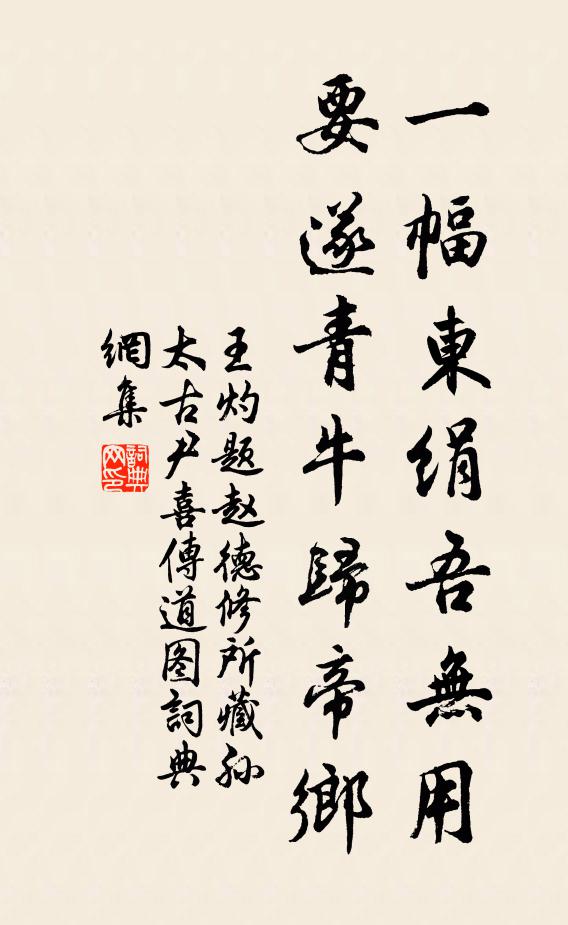 一幅東絹吾無用
要遂青牛歸帝鄉
王灼题赵德修所藏孙
太古尹喜傳道图詞典
網集
詞典
网印